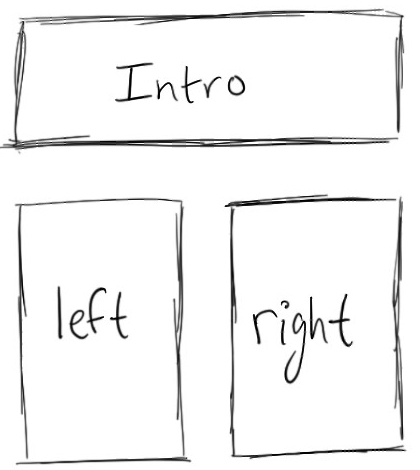 Intro
left
right